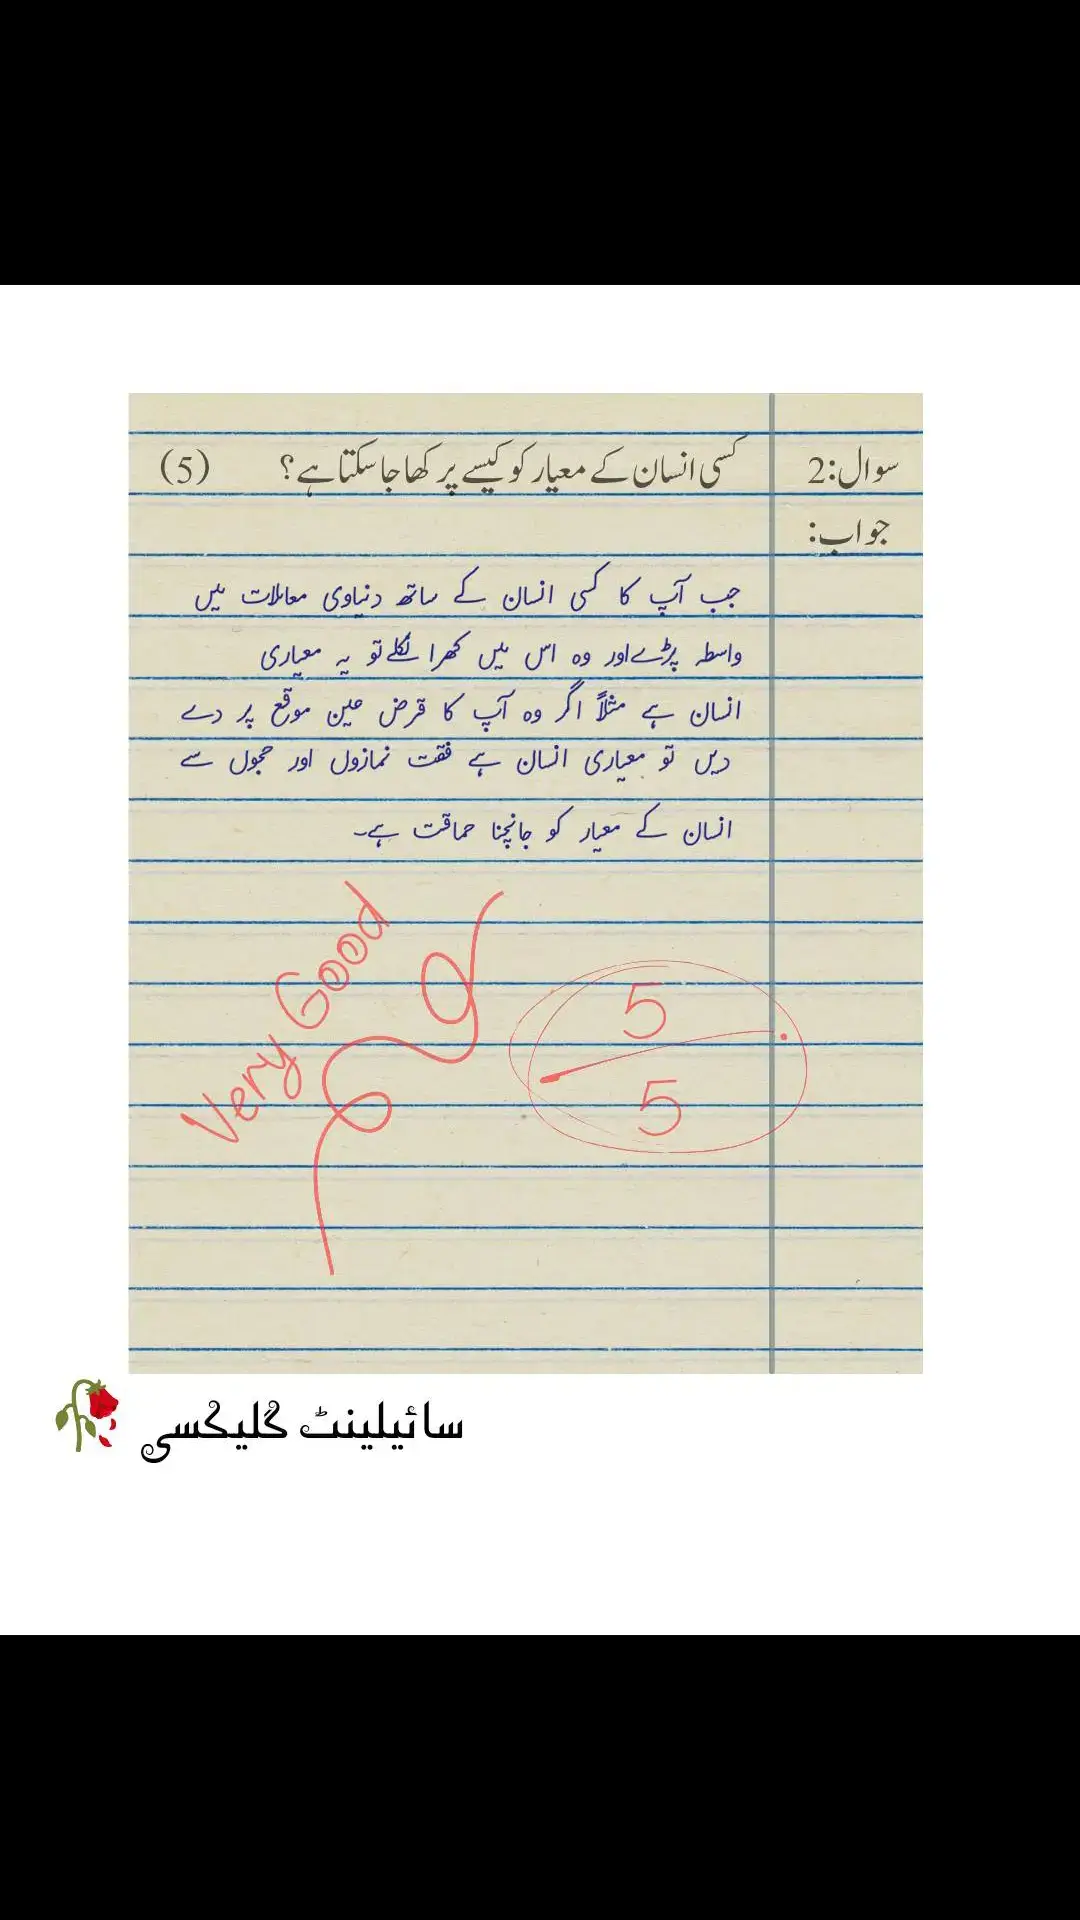 سوال:2 کسی انسان کے معیار کو کیسے پرکھا جا سکتا ہے؟ (5)
جواب:
جب آپ کا کسی انسان کے ساتھ دنیاوی معاملات میں
واسطہ پڑے اور وہ اس میں کھرا نکلے تو یہ معیاری
انسان ہے مثلاً اگر وہ آپ کا قرض عین موقع پر دے
دیں تو معیاری انسان ہے فقت نمازوں اور حجوں سے
انسان کے معیار کو جانچنا حماقت ہے۔
Very Good
5
5
سائیلینٹ گلیکسی